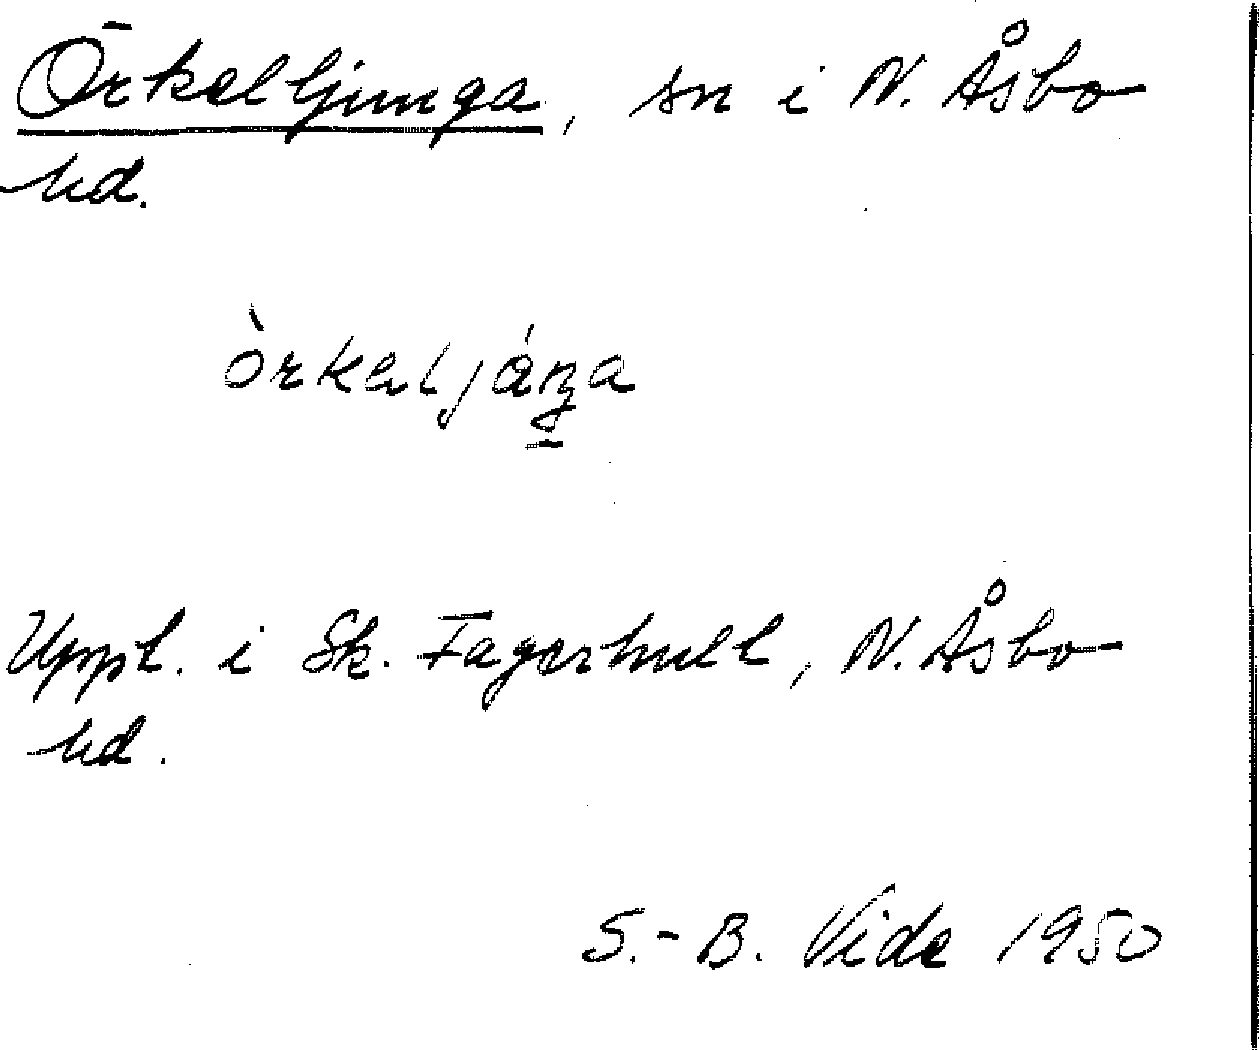 Örkelljunga, sn i N. Åsbo
hd.
Uppt. i Sk. Fagerhult, N. Åsbo
hd.
S.-B. Vide 1950